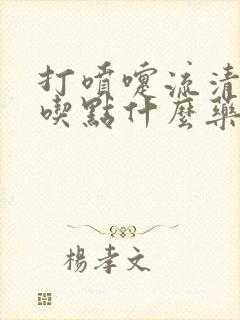 打噴嚏流清
喫點什麼藥
楊孝文